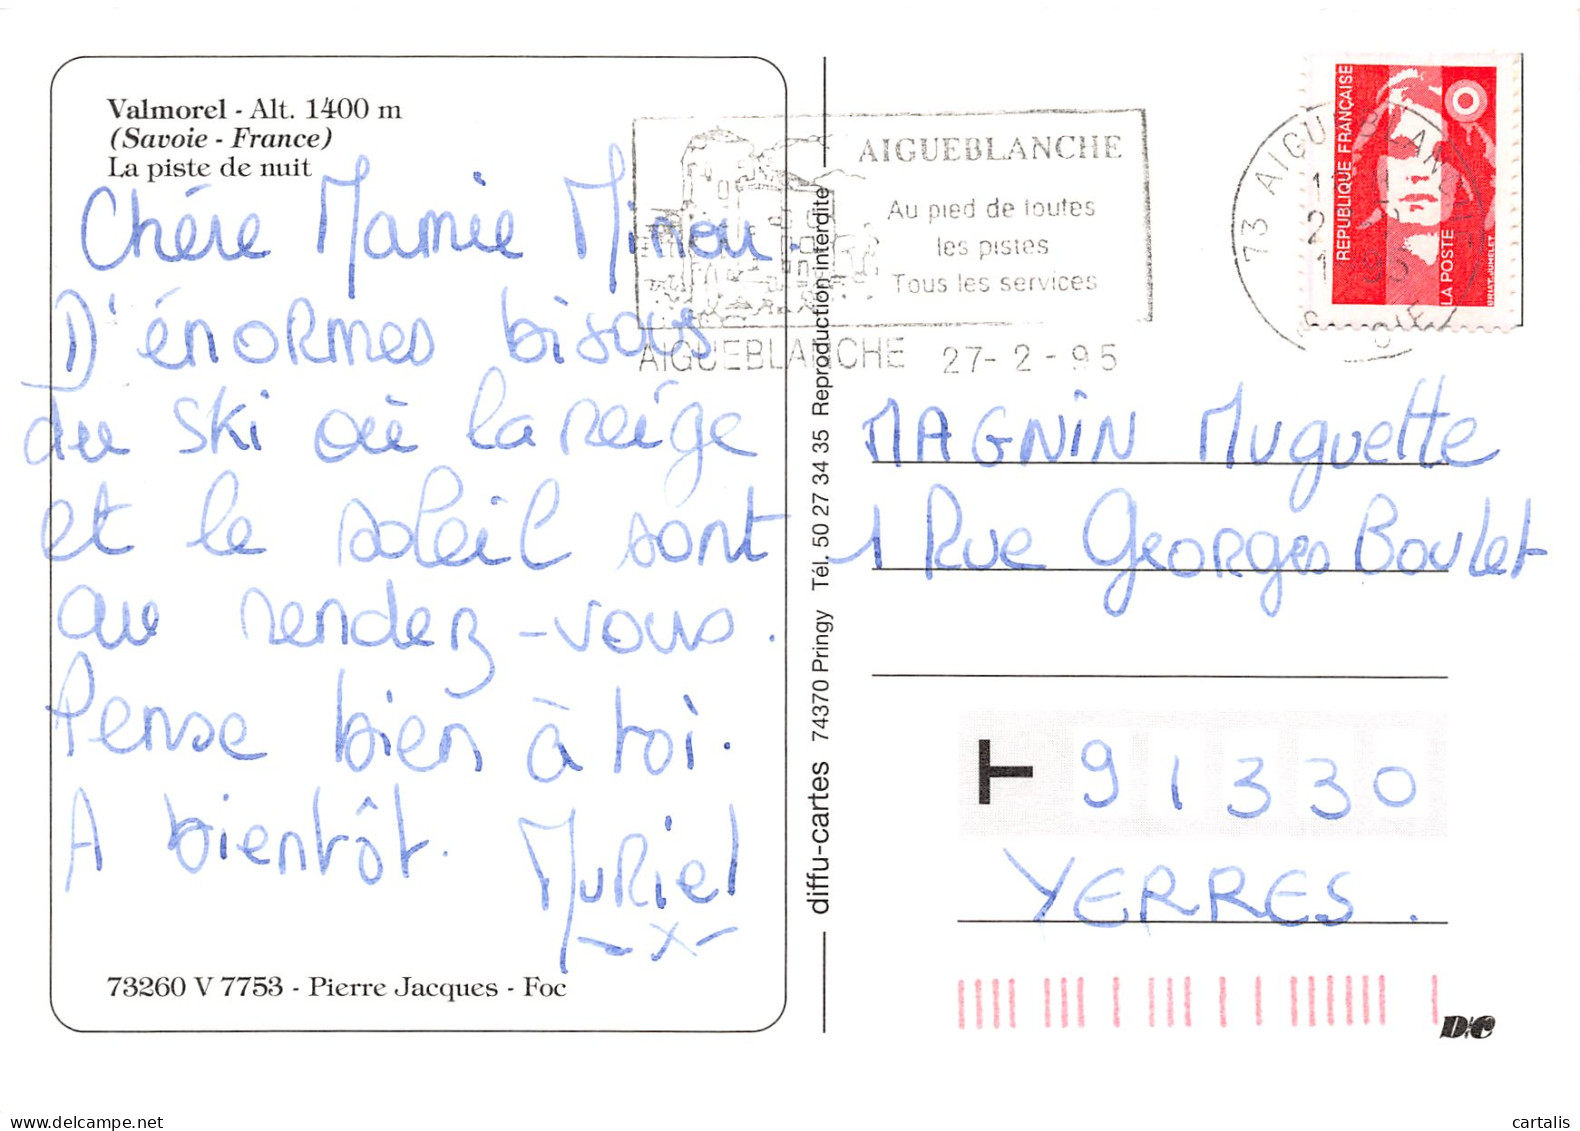 Valmorel - Alt. 1400 m
(Savoie - France)
La piste de nuit
Chère Mamie Minou.
D'énormes bisous
du ski où la neige
et le soleil sont
au rendez-vous.
Pense bien à toi.
A bientôt.
Muriel
73260 V 7753 - Pierre Jacques - Foc
diffu-cartes 74370 Pringy Tél. 50 27 34 35 Reproduction interdite
AIGUEBLANCHE
Au pied de toutes
les pistes
Tous les services
AIGUEBLANCHE 27-2-95
73 AIGUEBLANCHE
SAVOIE
REPUBLIQUE FRANÇAISE
LA POSTE
BRIAT-JUMELET
MAGNIN Muguette
1 Rue Georges Boulet
91330
YERRES.
D.C
cartalis
delcampe.net